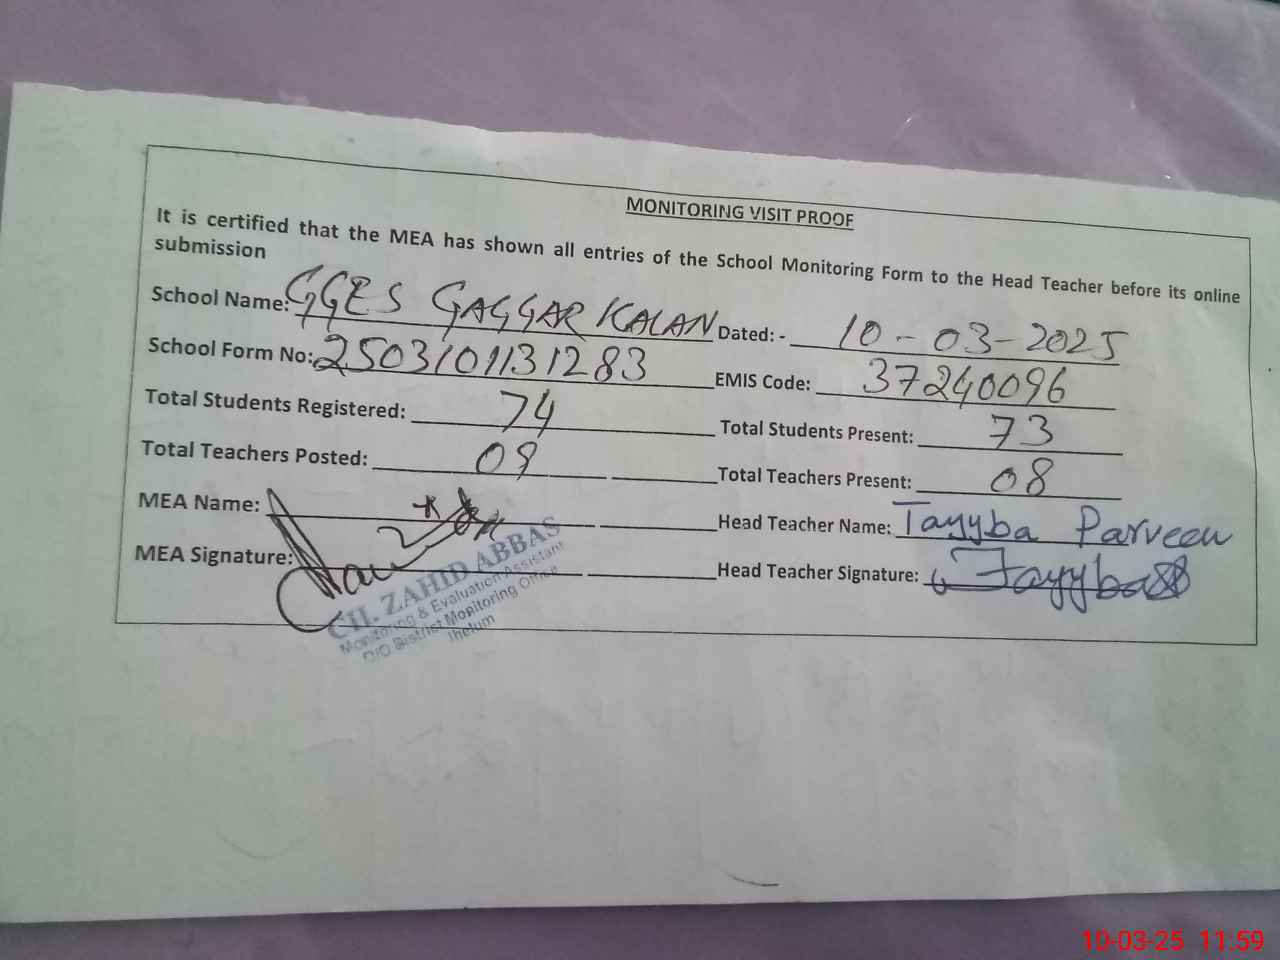 MONITORING VISIT PROOF
It is certified that the MEA has shown all entries of the School Monitoring Form to the Head Teacher before its online
submission
School Name: GGES GAGGAR KALAN Dated: - 10-03-2025
School Form No: 2503101131283 EMIS Code: 37240096
Total Students Registered: 74 Total Students Present: 73
Total Teachers Posted: 09 Total Teachers Present: 08
MEA Name: Head Teacher Name: Tayyba Parveen
MEA Signature: Head Teacher Signature: Tayyba
CH. ZAHID ABBAS
Monitoring & Evaluation Assistant
O/O District Monitoring Office
Jhelum
10-03-25 11:59